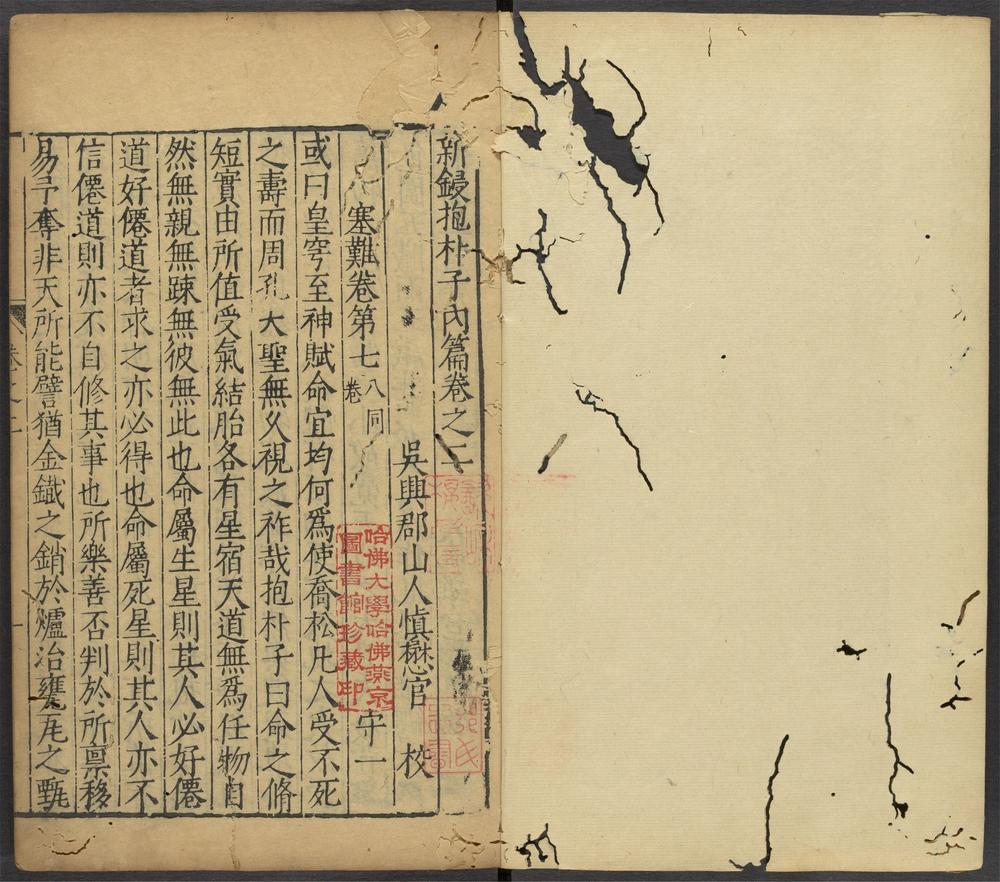 新鋟抱朴子內篇卷之二
吳興郡山人慎懋官 校
塞難卷第七 八同卷 守一
或曰皇穹至神賦命宜均何爲使喬松凡人受不死
之壽而周孔大聖無久視之祚哉抱朴子曰命之脩
短實由所值受氣結胎各有星宿天道無爲任物自
然無親無踈無彼無此也命屬生星則其人必好僊
道好僊道者求之亦必得也命屬死星則其人亦不
信僊道則亦不自修其事也所樂善否判於所禀移
易予奪非天所能譬猶金鐵之銷於爐冶甕瓦之甄
卷之二
哈佛大學哈佛燕京
圖書館珍藏印